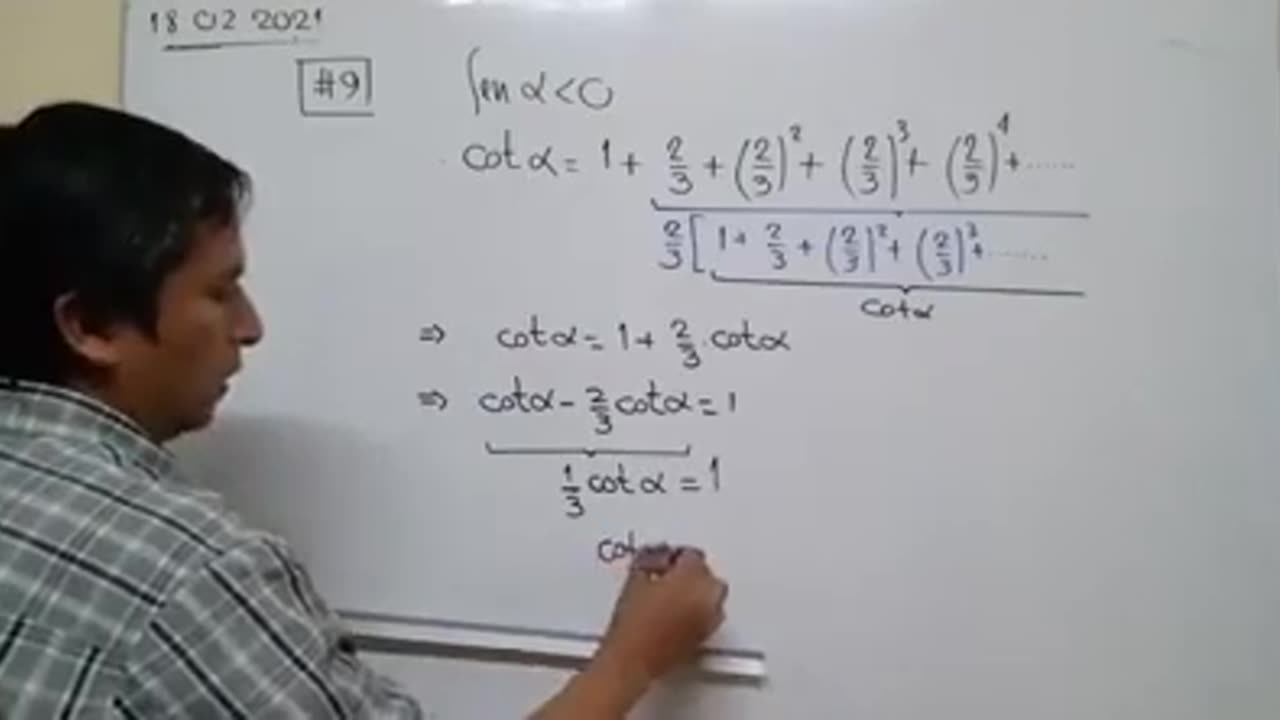 18 02 2021
#9
Sen α < 0
cot α = 1 + 2/3 + (2/3)^2 + (2/3)^3 + (2/3)^4 + ......
2/3 [ 1 + 2/3 + (2/3)^2 + (2/3)^3 + ......
cot α
⇒ cot α = 1 + 2/3 . cot α
⇒ cot α - 2/3 cot α = 1
1/3 cot α = 1
cot